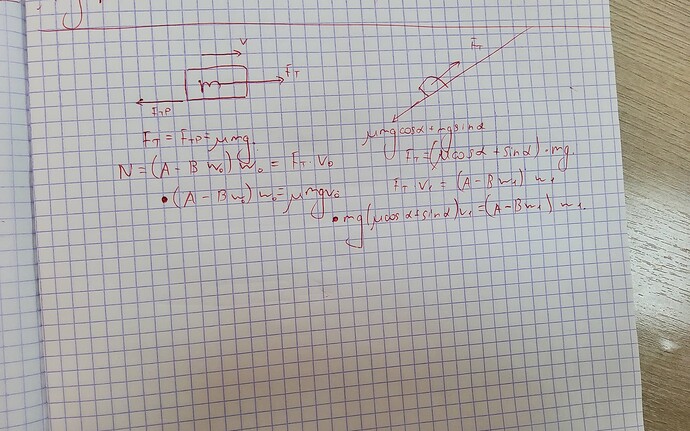 V
m
F_T
F_TP
F_T = F_TP = μmg.
N = (A - B w₀) w₀ = F_T · V₀
• (A - B w₀) w₀ = μmgv₀
F_T
μmg cosα + mg sinα
F_T = (μcosα + sinα) · mg.
F_T · V₁ = (A - B w₁) w₁
• mg(μcosα + sinα)v₁ = (A - B w₁) w₁.